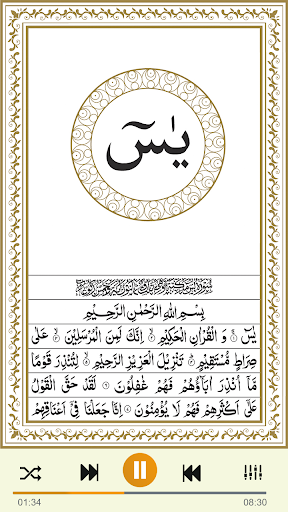 يٰسٓ
بِسْمِ اللهِ الرَّحْمٰنِ الرَّحِيْمِ
يٰسٓ ۞ وَ الْقُرْاٰنِ الْحَكِيْمِ ۞ اِنَّكَ لَمِنَ الْمُرْسَلِيْنَ ۞ عَلٰى
صِرَاطٍ مُّسْتَقِيْمٍ ۞ تَنْزِيْلَ الْعَزِيْزِ الرَّحِيْمِ ۞ لِتُنْذِرَ قَوْمًا
مَّاۤ اُنْذِرَ اٰبَآؤُهُمْ فَهُمْ غٰفِلُوْنَ ۞ لَقَدْ حَقَّ الْقَوْلُ
عَلٰٓى اَكْثَرِهِمْ فَهُمْ لَا يُؤْمِنُوْنَ ۞ اِنَّا جَعَلْنَا فِيْٓ اَعْنَاقِهِمْ
01:34 08:30